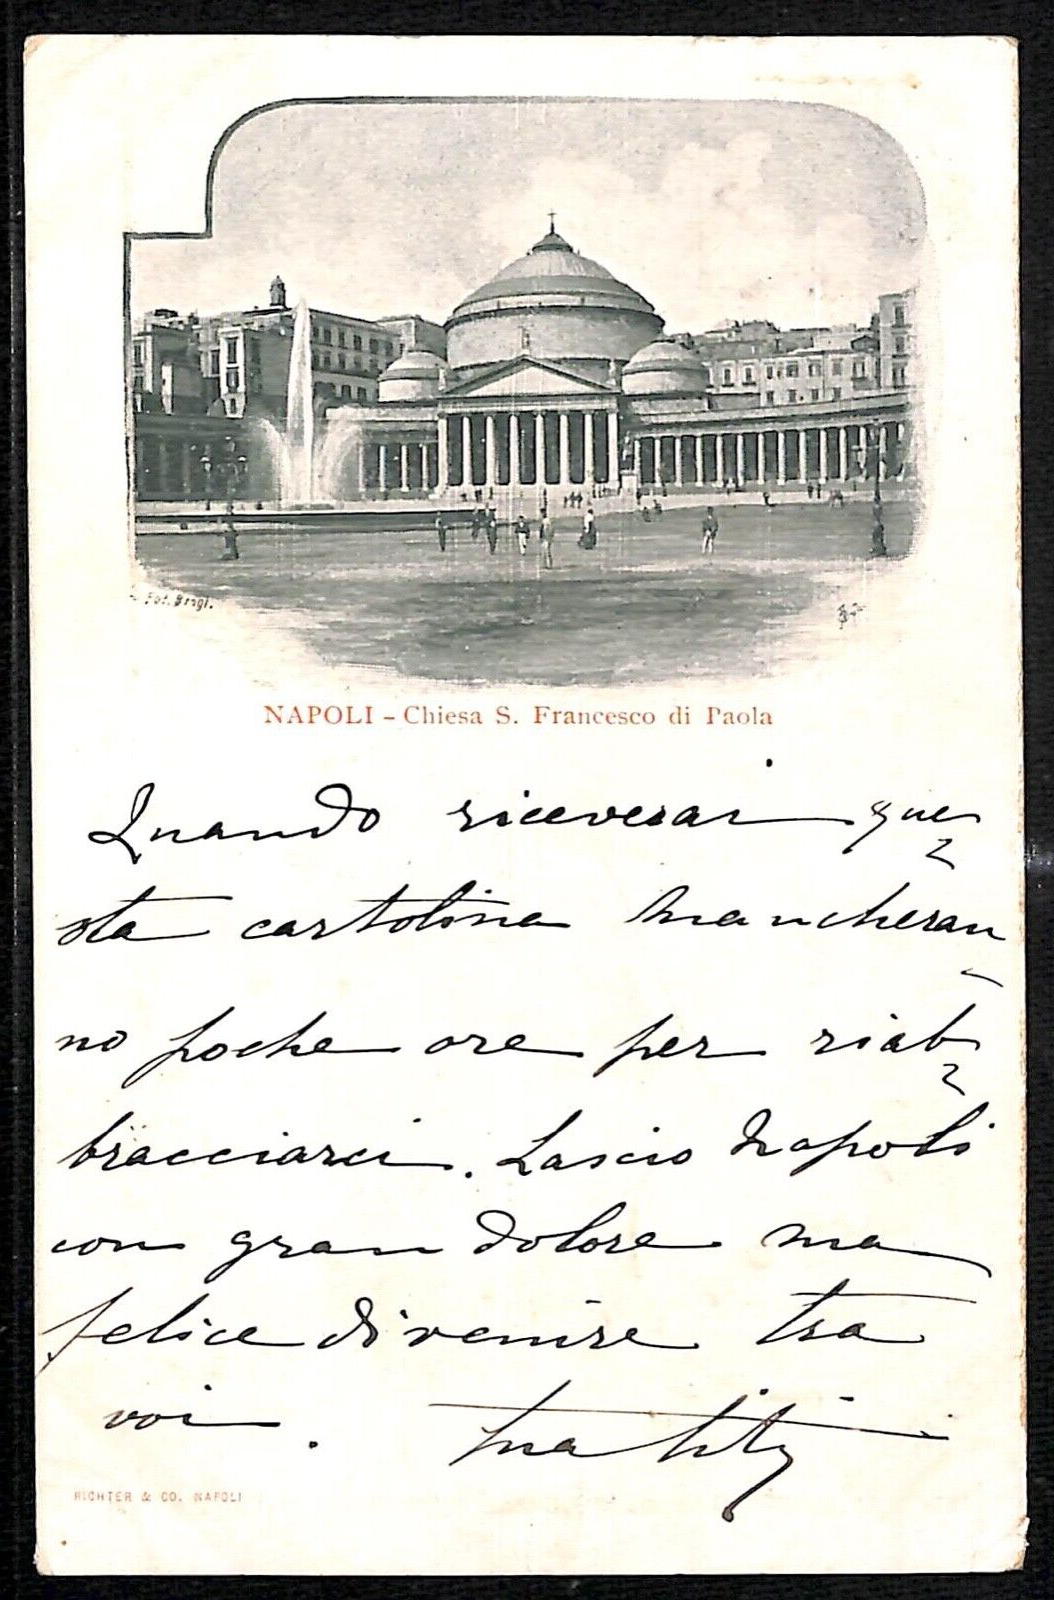 Fot. Brogi.
NAPOLI - Chiesa S. Francesco di Paola
Quando riceverai que
sta cartolina mancheran
no poche ore per riab
bracciarci. Lascio Napoli
con gran dolore ma
felice di venire tra
voi. tua
RICHTER & CO. NAPOLI